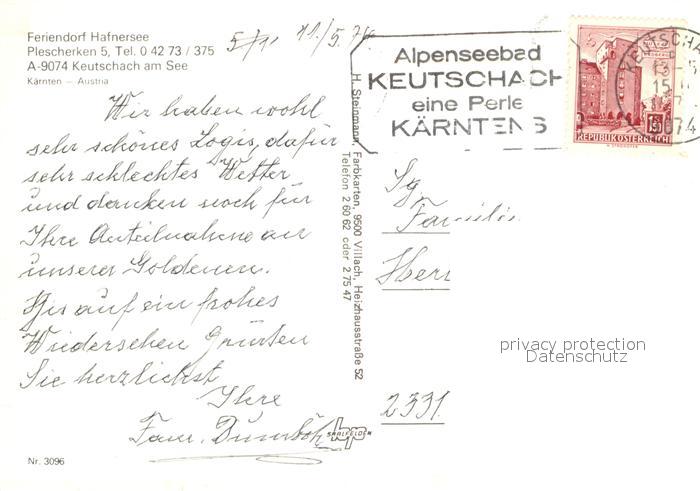 Feriendorf Hafnersee
Plescherken 5, Tel. 0 42 73 / 375
A-9074 Keutschach am See
Kärnten — Austria
11/5.
Wir haben wohl
sehr schönes Logis, dafür
sehr schlechtes Wetter
und danken noch für
Ihre Anteilnahme an
unserer Goldenen.
Bis auf ein frohes
Wiedersehen Grüsten
Sie herzlichst
Ihre
Fam.
Nr. 3096
H. Steinmann, Farbkarten, 9500 Villach, Heizhausstraße 52
Telefon 2 60 62 oder 2 75 47
SAALFELDEN
Alpenseebad
KEUTSCHACH
eine Perle
KÄRNTENS
REPUBLIK ÖSTERREICH
Sg
Familie
Herr
privacy protection
Datenschutz
2331.